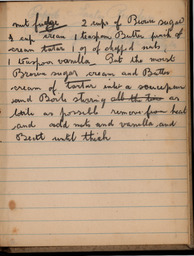 nut fudge 2 cups of Brown sugar
1 cup cream 1 teaspoon Butter pinch of
cream tartar 1 g of chop'd nuts,
1 teaspoon vanilla. Put the moist
Brown sugar cream and Butter
cream of tartar into a saucepan
and Boile stirring all the time as
little as possible remove from heat
and add nuts and vanilla and
Beatt until thick